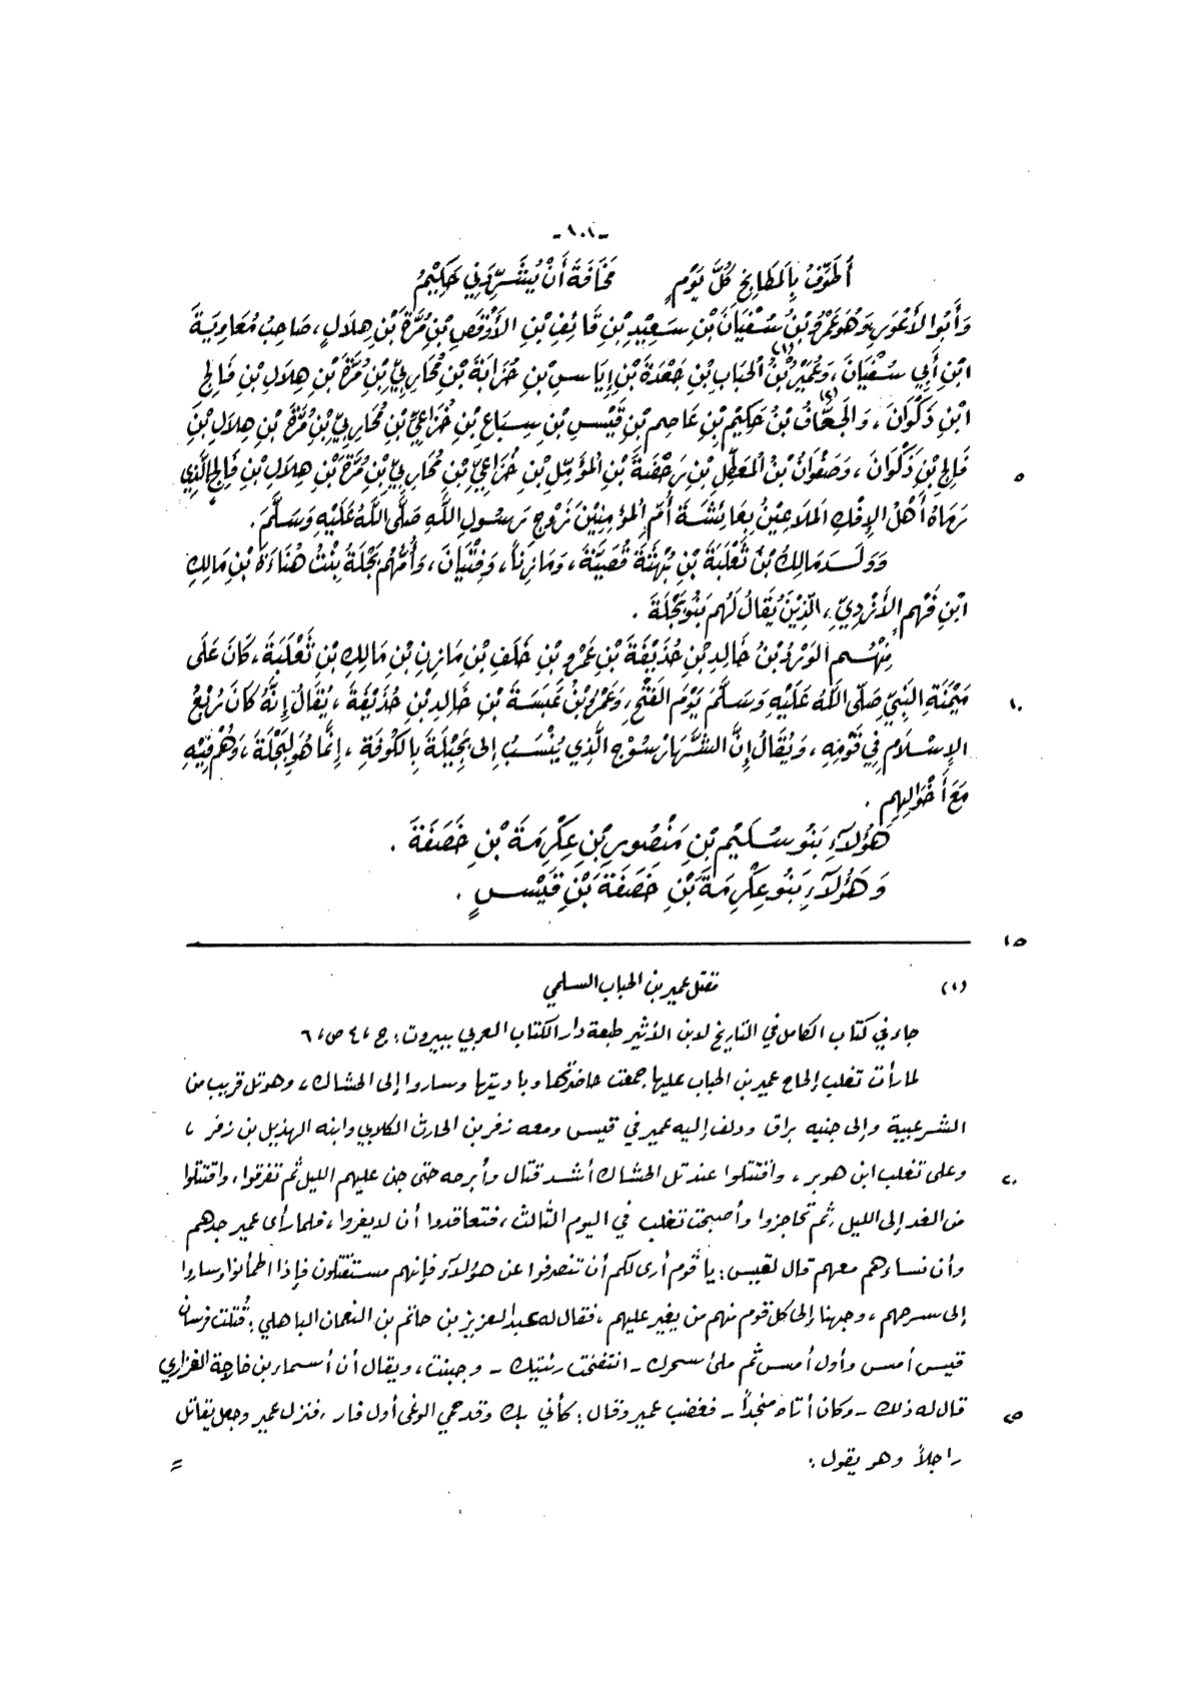 -١٠١-
أُطَوِّفُ بِالمَطَابِخِ كُلَّ يَوْمٍ مَخَافَةَ أَنْ يُشَرِّدَنِي حَكِيْمُ
وَأَبُو الأَعْوَرِ وَهُوَ عَمْرُو بْنُ سُفْيَانَ بْنِ سَعِيْدِ بْنِ قَائِفِ بْنِ الأَوْقَصِ بْنِ مُرَّةَ بْنِ هِلَالٍ، صَاحِبُ مُعَاوِيَةَ
ابْنِ أَبِي سُفْيَانَ، وَعُمَيْرُ (١) بْنُ الحُبَابِ بْنِ جَعْدَةَ بْنِ إِيَاسِ بْنِ حُزَابَةَ بْنِ مُحَارِبِيِّ بْنِ مُرَّةَ بْنِ هِلَالِ بْنِ فَالِجِ
ابْنِ ذَكْوَانَ، وَالجَحَّافُ (٢) بْنُ حَكِيْمِ بْنِ عَاصِمِ بْنِ قَيْسِ بْنِ سِبَاعِ بْنِ خُزَاعِيِّ بْنِ مُحَارِبِيِّ بْنِ مُرَّةَ بْنِ هِلَالِ بْنِ
فَالِجِ بْنِ ذَكْوَانَ، وَصَفْوَانُ بْنُ المُعَطَّلِ بْنِ رَحْضَةَ بْنِ المُؤَمَّلِ بْنِ خُزَاعِيِّ بْنِ مُحَارِبِيِّ بْنِ مُرَّةَ بْنِ هِلَالِ بْنِ فَالِجِ الَّذِي ٥
رَمَاهُ أَهْلُ الإِفْكِ المَلَاعِيْنُ بِعَائِشَةَ أُمِّ المُؤمِنِيْنَ زَوْجِ رَسُولِ اللَّهِ صَلَّى اللَّهُ عَلَيْهِ وَسَلَّمَ.
وَوَلَدَ مَالِكُ بْنُ ثَعْلَبَةَ بْنِ بُهْثَةَ قُصَيَّةَ، وَمَازِناً، وَفِتْيَانَ، وَأُمُّهُم بَجْلَةُ بِنْتُ هُنَاءَةَ بْنِ مَالِكِ
ابْنِ فَهْمٍ الأَزْدِيِّ، الَّذِيْنَ يُقَالُ لَهُم بَنُو بَجْلَةَ.
مِنْهُم الوَرْدُ بْنُ خَالِدِ بْنِ حُذَيْفَةَ بْنِ عَمْرِو بْنِ خَلَفِ بْنِ مَازِنِ بْنِ مَالِكِ بْنِ ثَعْلَبَةَ، كَانَ عَلَى
مَيْمَنَةِ النَّبِيِّ صَلَّى اللَّهُ عَلَيْهِ وَسَلَّمَ يَوْمَ الفَتْحِ، وَعَمْرُو بْنُ عَبَسَةَ بْنِ خَالِدِ بْنِ حُذَيْفَةَ، يُقَالُ إِنَّهُ كَانَ رُبْعَ ١٠
الإِسْلَامِ فِي قَوْمِهِ، وَيُقَالُ إِنَّ الشَّهَارسُوْجَ الَّذِي يُنْسَبُ إِلَى بَجِيْلَةَ بِالكُوفَةِ، إِنَّمَا هُوَ لِبَجْلَةَ، وَهُم فِيْهِ
مَعَ أَخْوَالِهِم.
هَؤُلَاءِ بَنُو سُلَيْمِ بْنِ مَنْصُورِ بْنِ عِكْرِمَةَ بْنِ خَصَفَةَ.
وَهَؤُلَاءِ بَنُو عِكْرِمَةَ بْنِ خَصَفَةَ بْنِ قَيْسٍ.
١٥
(١) مقتل عمير بن الحباب السلمي
جاء في كتاب الكامل في التاريخ لابن الأثير طبعة دار الكتاب العربي ببيروت: ج،٤ ص،٦
لما رأت تغلب إلحاح عمير بن الحباب عليها جمعت حاضرتها وباديتها وساروا إلى الحشاك، وهو تل قريب من
الشرعبية وإلى جنبه براق ودلف إليه عمير في قيس ومعه زفر بن الحارث الكلابي وابنه الهذيل بن زفر،
وعلى تغلب ابن هوبر، واقتتلوا عند تل الحشاك أشد قتال وأبرحه حتى جن عليهم الليل ثم تفرقوا، واقتتلوا ٢٠
من الغد إلى الليل، ثم تحاجزوا وأصبحت تغلب في اليوم الثالث، فتعاقدوا أن لا يفروا، فلما رأى عمير جدهم
وأن نساءهم معهم قال لقيس: يا قوم أرى لكم أن تنصرفوا عن هؤلاء فإنهم مستقتلون فإذا اطمأنوا وساروا
إلى سرحهم، وجهنا إلى كل قوم منهم من يغير عليهم، فقال له عبد العزيز بن حاتم بن النعمان الباهلي: قُتلت فرسان
قيس أمس وأول أمس ثم ملئ سحرك - انتفخت رئتيك - وجبنت، ويقال أن أسماء بن خارجة الفزاري
قال له ذلك - وكان أتاه منجداً - فغضب عمير وقال: كأني بك وقد حمي الوغى أول فار، فنزل عمير وجعل يقاتل ٢٥
راجلاً وهو يقول: =